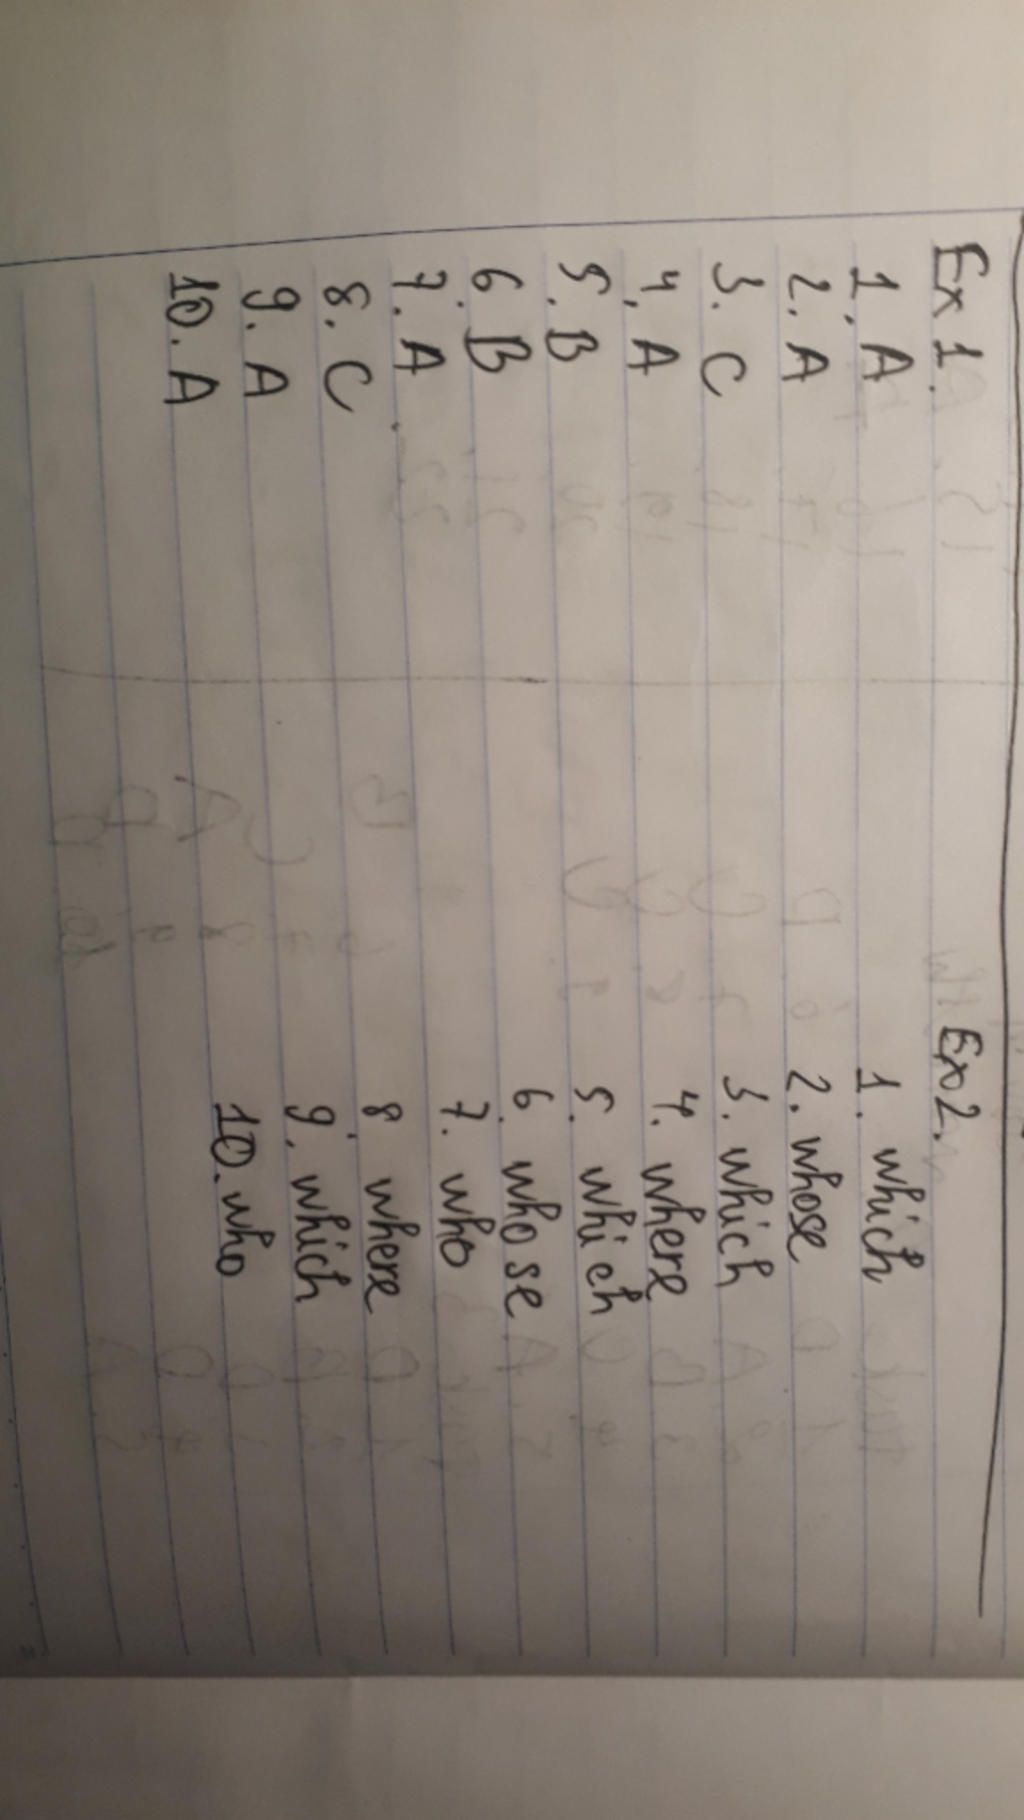 Ex 1.
1. A
2. A
3. C
4. A
5. B
6. B
7. A
8. C
9. A
10. A
Ex 2.
1. which
2. whose
3. which
4. where
5. which
6. whose
7. who
8. where
9. which
10. who